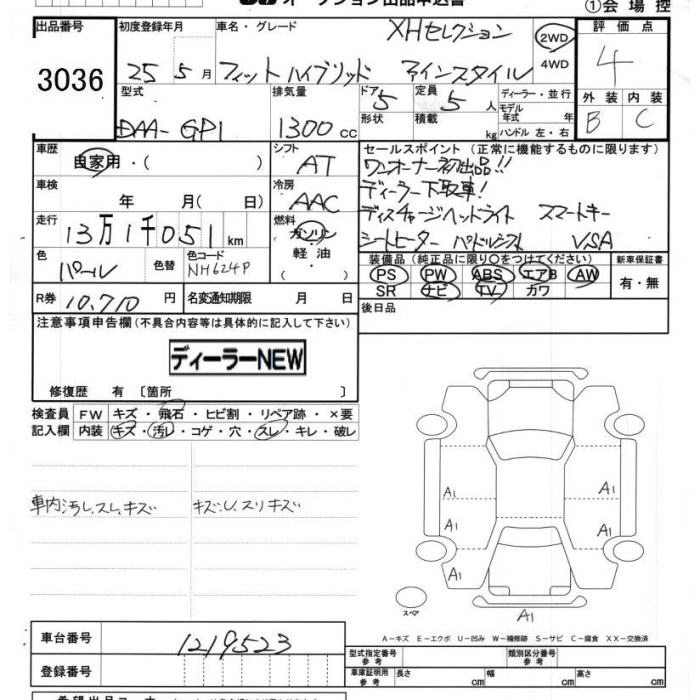 オークション出品申込書 ①会場控
出品番号 初度登録年月 車名・グレード XHセレクション 2WD 評価点
3036 25 5月 フィットハイブリッド ファインスタイル 4WD 4
型式 排気量 ドア 5 定員 5人 ディーラー・並行 外装 内装
DAA-GP1 1300cc 形状 積載 kg モデル年式 年 B C
ハンドル 左・右
車歴 自家用・( ) シフト AT セールスポイント (正常に機能するものに限ります)
ワンオーナー初出品!!
車検 年 月( 日) 冷房 AAC ディーラー下取車!
走行 13万1千051km 燃料 ガソリン ディスチャージヘッドライト スマートキー
軽油 シートヒーター パドルシフト VSA
・( )
色 パール 色替 色コード NH624P 装備品 (純正品に限り○をつけてください) 新車保証書
PS PW ABS エアB AW 有・無
R券 10,710円 名変通知期限 月 日 SR ナビ TV カワ
後日品
注意事項申告欄(不具合内容等は具体的に記入して下さい)
ディーラーNEW
修復歴 有 〔箇所 〕
検査員 FW キズ・飛石・ヒビ割・リペア跡・×要
記入欄 内装 キズ・汚レ・コゲ・穴・スレ・キレ・破レ
車内汚レ、スレ、キズ キズ、U、スリキズ
A1 A1
A1 A1
A1 A1
スペア A1
A−キズ E−エクボ U−凹み W−補修跡 S−サビ C−腐食 XX−交換済
車台番号 1219523 型式指定番号 参考 類別区分番号 参考
登録番号 車庫証明用 参考 長さ cm 幅 cm 高さ cm
希望出品コーナー